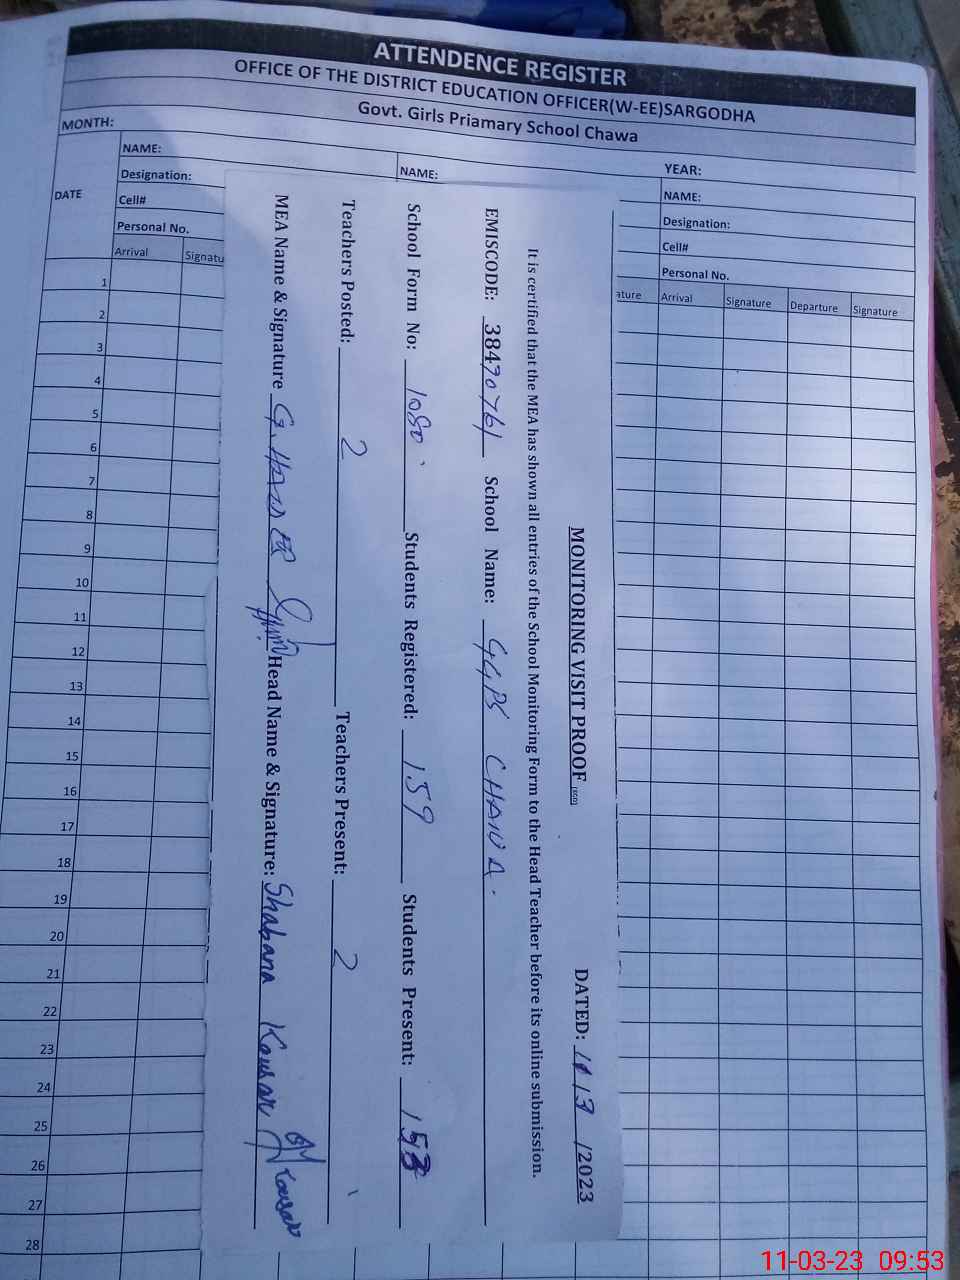 ATTENDENCE REGISTER
OFFICE OF THE DISTRICT EDUCATION OFFICER(W-EE)SARGODHA
Govt. Girls Priamary School Chawa
MONTH:
YEAR:
DATE
NAME:
Designation:
Cell#
Personal No.
Arrival Signatu
NAME:
NAME:
Designation:
Cell#
Personal No.
ature Arrival Signature Departure Signature
1
2
3
4
5
6
7
8
9
10
11
12
13
14
15
16
17
18
19
20
21
22
23
24
25
26
27
28
MONITORING VISIT PROOF
DATED: /2023
It is certified that the MEA has shown all entries of the School Monitoring Form to the Head Teacher before its online submission.
EMISCODE: 38490761 School Name: GGPS CHAWA.
School Form No: 1080 Students Registered: 159 Students Present: 153
Teachers Posted: 2 Teachers Present: 2
MEA Name & Signature Head Name & Signature: Shabana Kousar
11-03-23 09:53